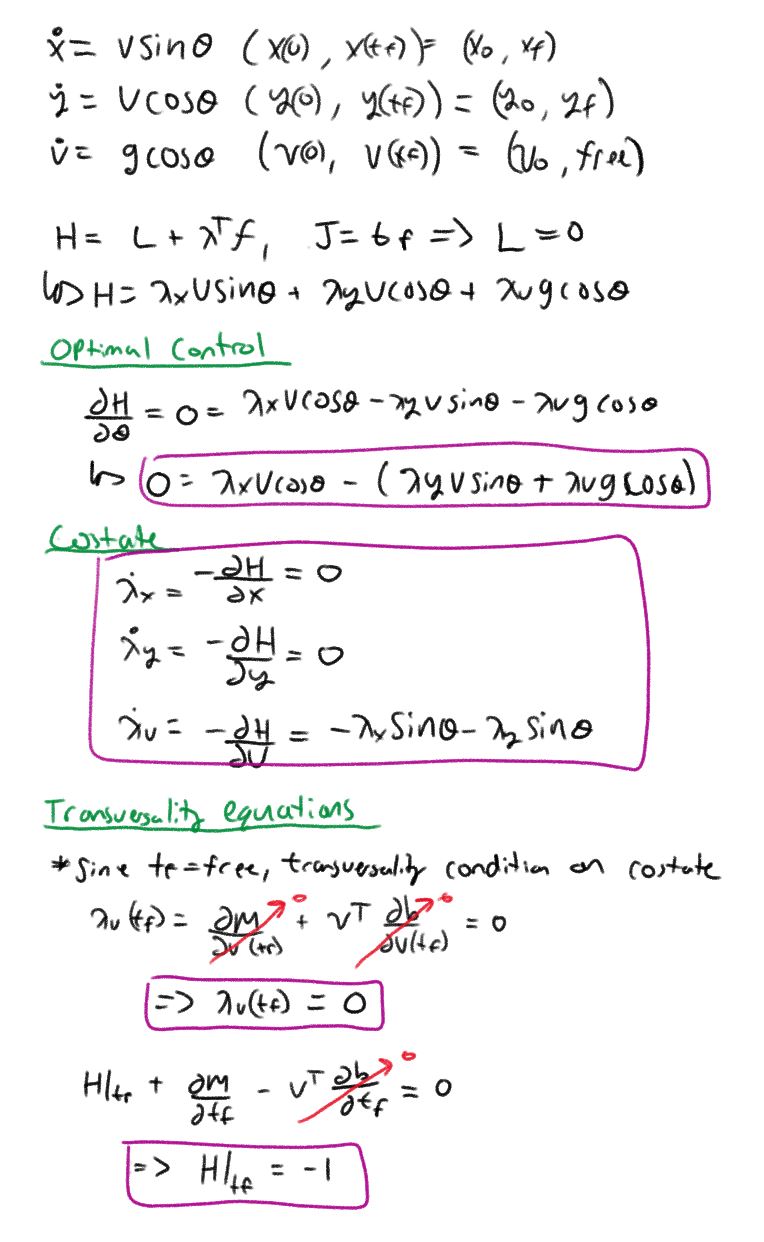 ẋ = v sinθ (x(0), x(tf)) = (x₀, xf)
ẏ = v cosθ (y(0), y(tf)) = (y₀, yf)
v̇ = g cosθ (v(0), v(tf)) = (v₀, free)
H = L + λᵀf, J = tf => L = 0
↳ H = λx v sinθ + λy v cosθ + λv g cosθ
Optimal Control
∂H/∂θ = 0 = λx v cosθ - λy v sinθ - λv g cosθ
↳ 0 = λx v cosθ - (λy v sinθ + λv g cosθ)
Costate
λ̇x = -∂H/∂x = 0
λ̇y = -∂H/∂y = 0
λ̇v = -∂H/∂v = -λx sinθ - λy sinθ
Transversality equations
* Sine tf = free, transversality condition on costate
λv(tf) = ∂M/∂v(tf) → 0 + νᵀ ∂b/∂v(tf) → 0 = 0
=> λv(tf) = 0
H|tf + ∂M/∂tf - νᵀ ∂b/∂tf → 0 = 0
=> H|tf = -1